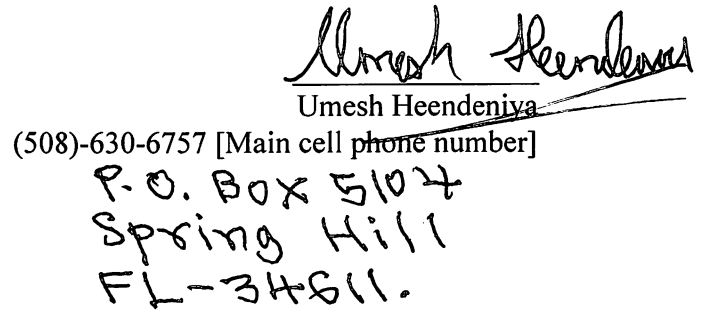 Umesh Heendeniya
Umesh Heendeniya
(508)-630-6757 [Main cell phone number]
P.O. Box 5104
Spring Hill
FL-34611.